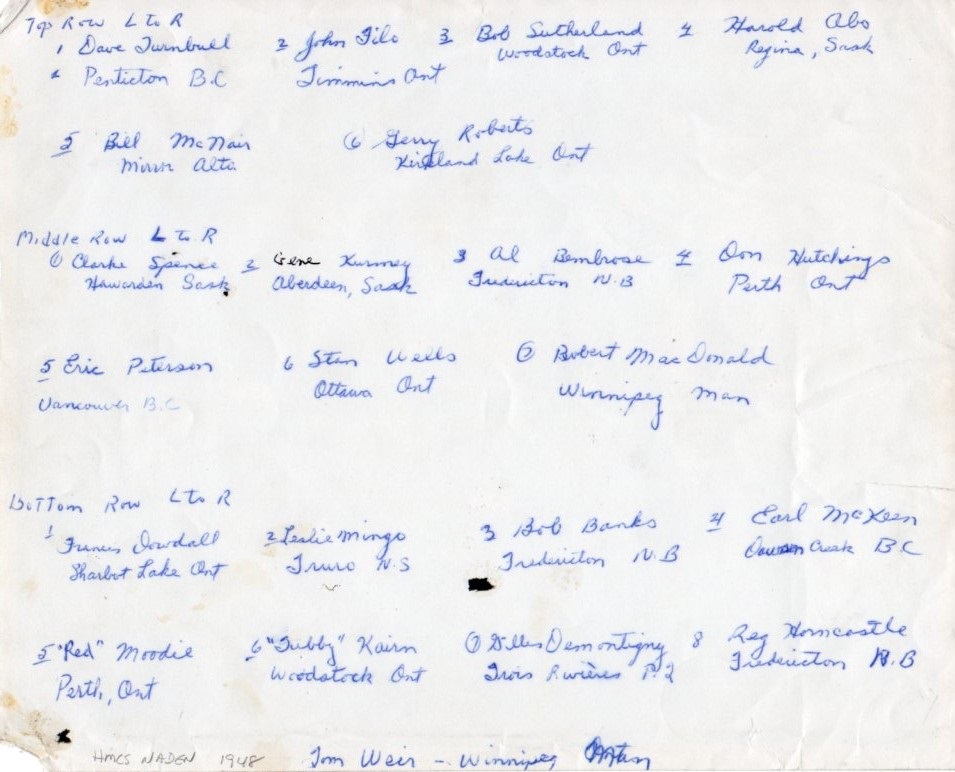 Top Row L to R
1 Dave Turnbull 2 John Filo 3 Bob Sutherland 4 Harold Abo
Penticton B.C Timmins Ont Woodstock Ont Regina, Sask
5 Bill McNair 6 Gerry Roberts
Mirror Alta Kirkland Lake Ont
Middle Row L to R
1 Clarke Spence 2 Gene Kurmey 3 Al Bembrose 4 Don Hutchings
Hawarden Sask Aberdeen, Sask Fredericton N.B Perth Ont
5 Eric Peterson 6 Stan Wells 7 Robert MacDonald
Vancouver B.C Ottawa Ont Winnipeg Man
Bottom Row L to R
1 Francis Dowdall 2 Leslie Mingo 3 Bob Banks 4 Earl McKeen
Sharbot Lake Ont Truro N.S Fredericton N.B Dawson Creek B C
5 "Red" Moodie 6 "Tubby" Kairn 7 Demontigny 8 Reg Horncastle
Perth, Ont Woodstock Ont Trois Rivières P.Q Fredericton N.B
HMCS NADEN 1948 Tom Weir - Winnipeg